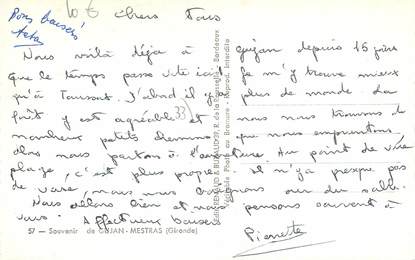 Bons baisers
10 €
Chers Tous
Nous voilà déjà à gujan depuis 15 jours
que le temps passe vite ici je m'y trouve mieux
qu'à Toussat. D'abord il y a plus de monde la
forêt y est agréable et nous nous trouvons de
nombreux petits chemins que nous empruntons,
alors nous partons à l'aventure. Au point de vue
plage, c'est plus propre il n'y a presque pas
de vase, mais nous ou du sable.
Nous allons bien et nous pensons souvent à
vous. Affectueux baisers
Pierrette
33
57 - Souvenir de GUJAN-MESTRAS (Gironde)
Edit. RENAUD & BUZAUD, R. de la Rousselle, Bordeaux
Véritable Photo au Bromure - Reprod. Interdite